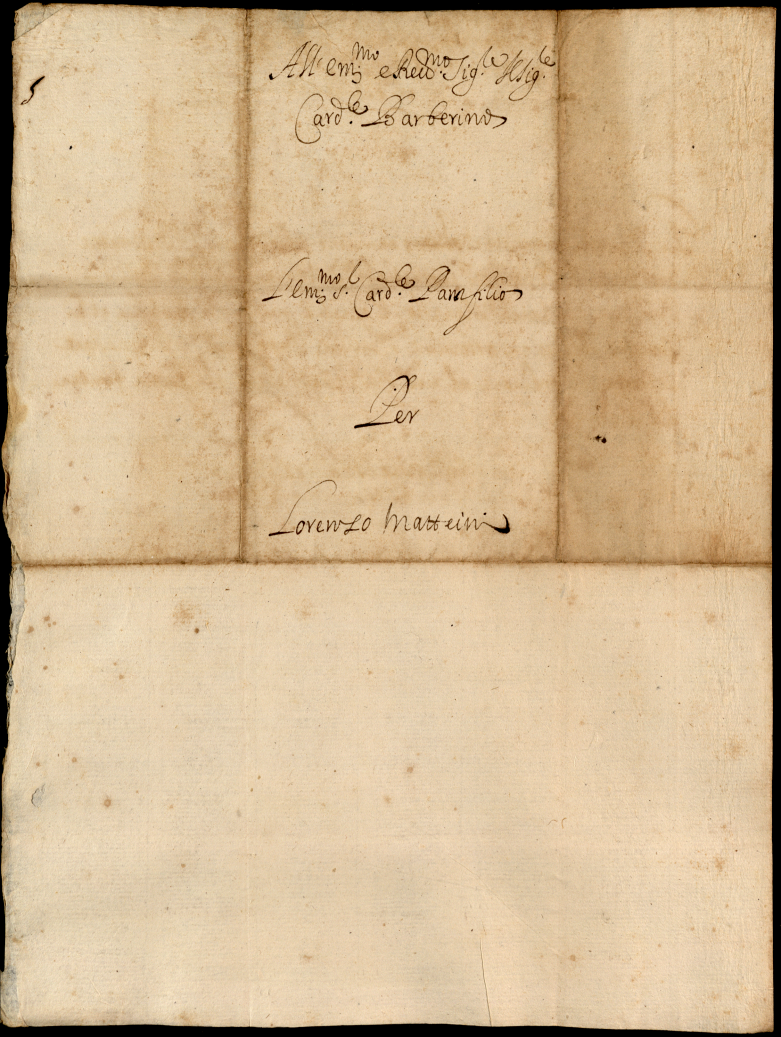 All' em:mo e Reu:mo Sig:le Il Sig:le
Card:le Barberino
L'em:mo S:l Card:le Pamfilio
Per
Lorenzo Matteini